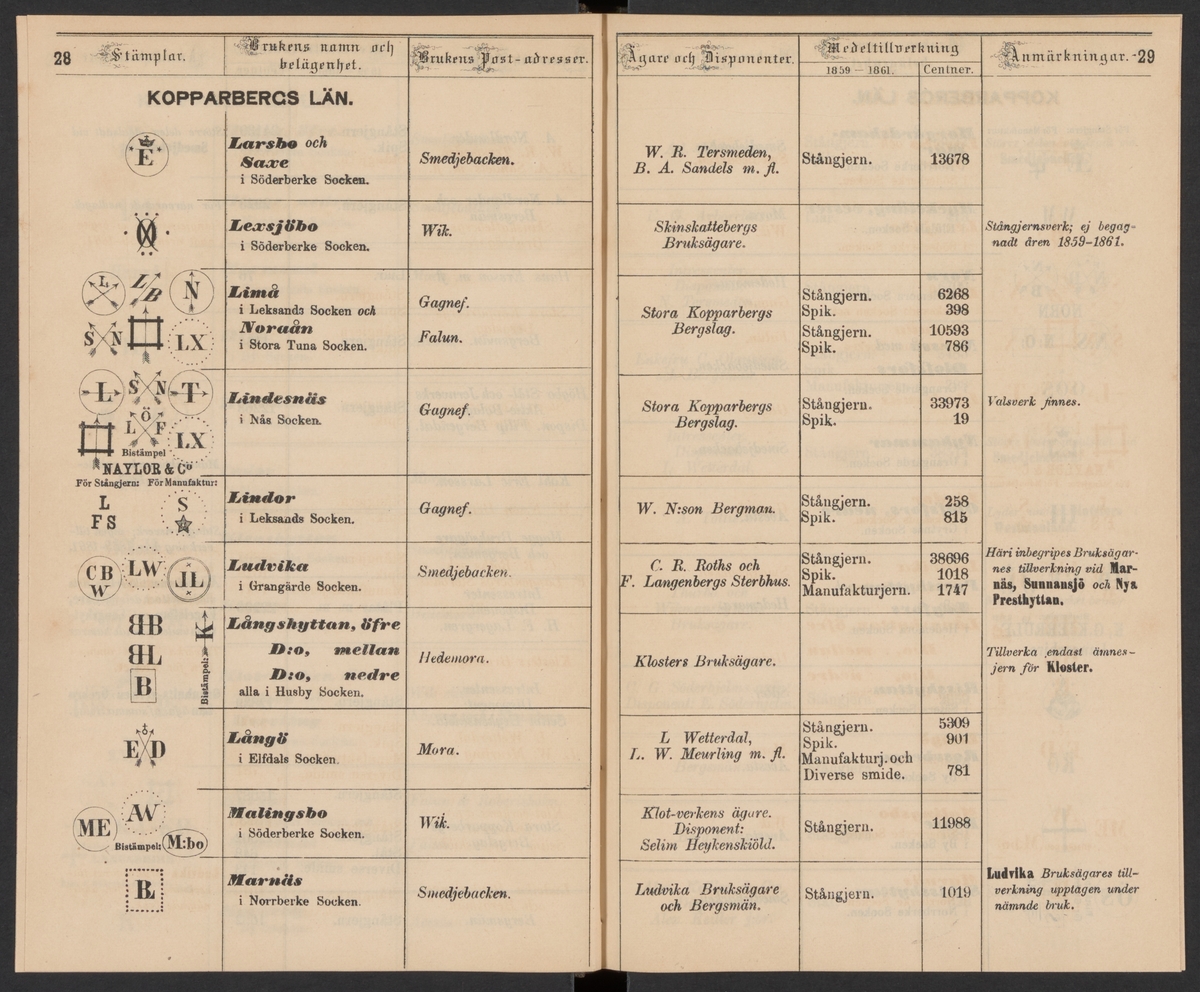 28
Stämplar.
Brukens namn och
belägenhet.
Brukens Post-adresser.
KOPPARBERGS LÄN.
E
Larsbo och
Saxe
i Söderberke Socken.
Smedjebacken.
Lexsjöbo
i Söderberke Socken.
Wik.
L
L/B
N
S N
LX
Limå
i Leksands Socken och
Noraån
i Stora Tuna Socken.
Gagnef.
Falun.
L
S N
T
Ö
L F
LX
Bistämpel
NAYLOR & Co
Lindesnäs
i Nås Socken.
Gagnef.
För Stångjern: För Manufaktur:
L
F S
S
Lindor
i Leksands Socken.
Gagnef.
CB
W
LW
JL
Ludvika
i Grangärde Socken.
Smedjebacken.
BB
BL
B
Bistämpel:
K
Långshyttan, öfre
D:o, mellan
D:o, nedre
alla i Husby Socken.
Hedemora.
E D
Långö
i Elfdals Socken.
Mora.
ME
AW
Bistämpel: M:bo
Malingsbo
i Söderberke Socken.
Wik.
Marnäs
i Norrberke Socken.
Smedjebacken.
Ägare och Disponenter.
Medeltillverkning
1859 – 1861.
Centner.
Anmärkningar.
29
W. R. Tersmeden,
B. A. Sandels m. fl.
Stångjern. 13678
Skinskattebergs
Bruksägare.
Stångjernsverk; ej begag-
nadt åren 1859-1861.
Stora Kopparbergs
Bergslag.
Stångjern. 6268
Spik. 398
Stångjern. 10593
Spik. 786
Stora Kopparbergs
Bergslag.
Stångjern. 33973
Spik. 19
Valsverk finnes.
W. N:son Bergman.
Stångjern. 258
Spik. 815
C. R. Roths och
F. Langenbergs Sterbhus.
Stångjern. 38696
Spik. 1018
Manufakturjern. 1747
Häri inbegripes Bruksägar-
nes tillverkning vid Mar-
näs, Sunnansjö och Nya
Presthyttan.
Klosters Bruksägare.
Tillverka endast ämnes-
jern för Kloster.
L Wetterdal,
L. W. Meurling m. fl.
Stångjern. 5309
Spik. 901
Manufakturj. och
Diverse smide. 781
Klot-verkens ägare.
Disponent:
Selim Heykenskiöld.
Stångjern. 11988
Ludvika Bruksägare
och Bergsmän.
Stångjern. 1019
Ludvika Bruksägares till-
verkning upptagen under
nämnde bruk.